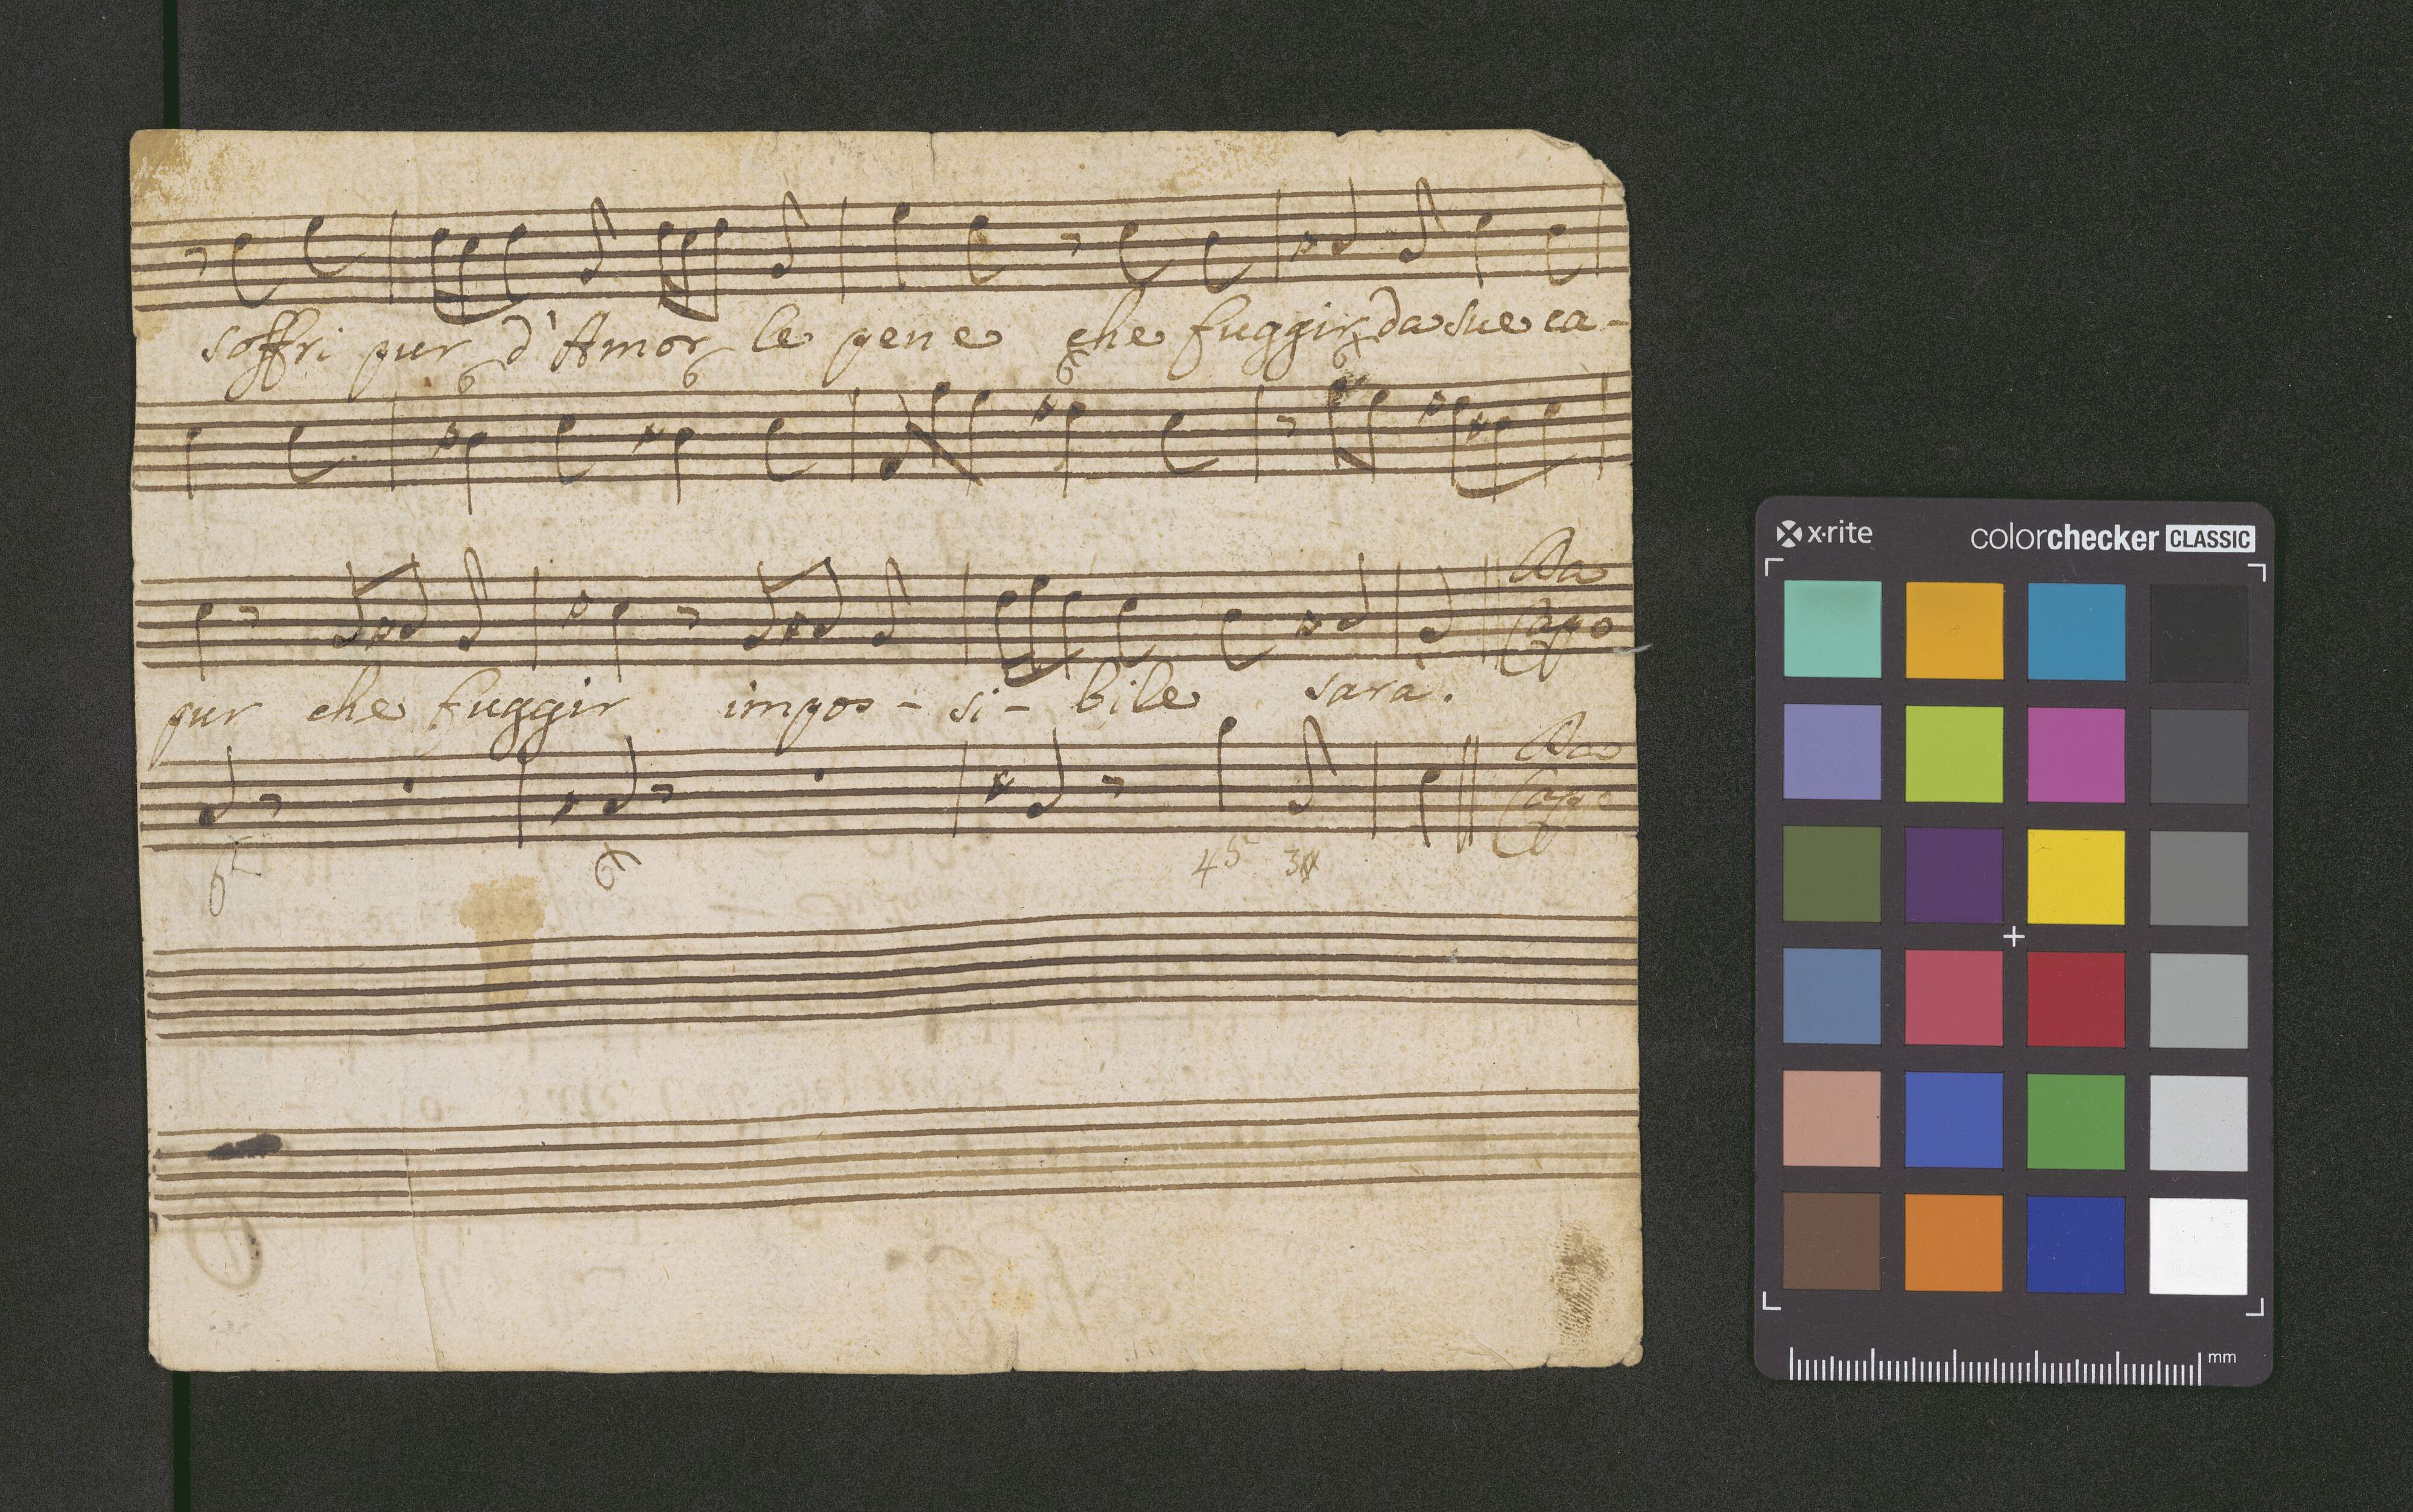 soffri pur d'Amor le pene che fuggir da sue ca-
6 6 6 6
Da
Capo
pur che fuggir impos - si - bile sarà.
Da
Capo
6 4 5 3
x·rite colorchecker CLASSIC
mm